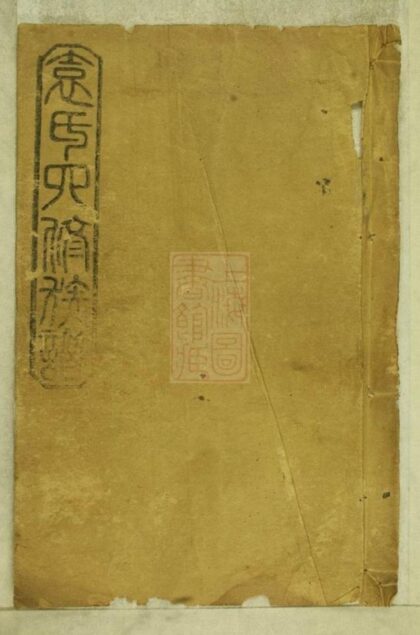 袁氏四修族譜
上海圖
書館藏